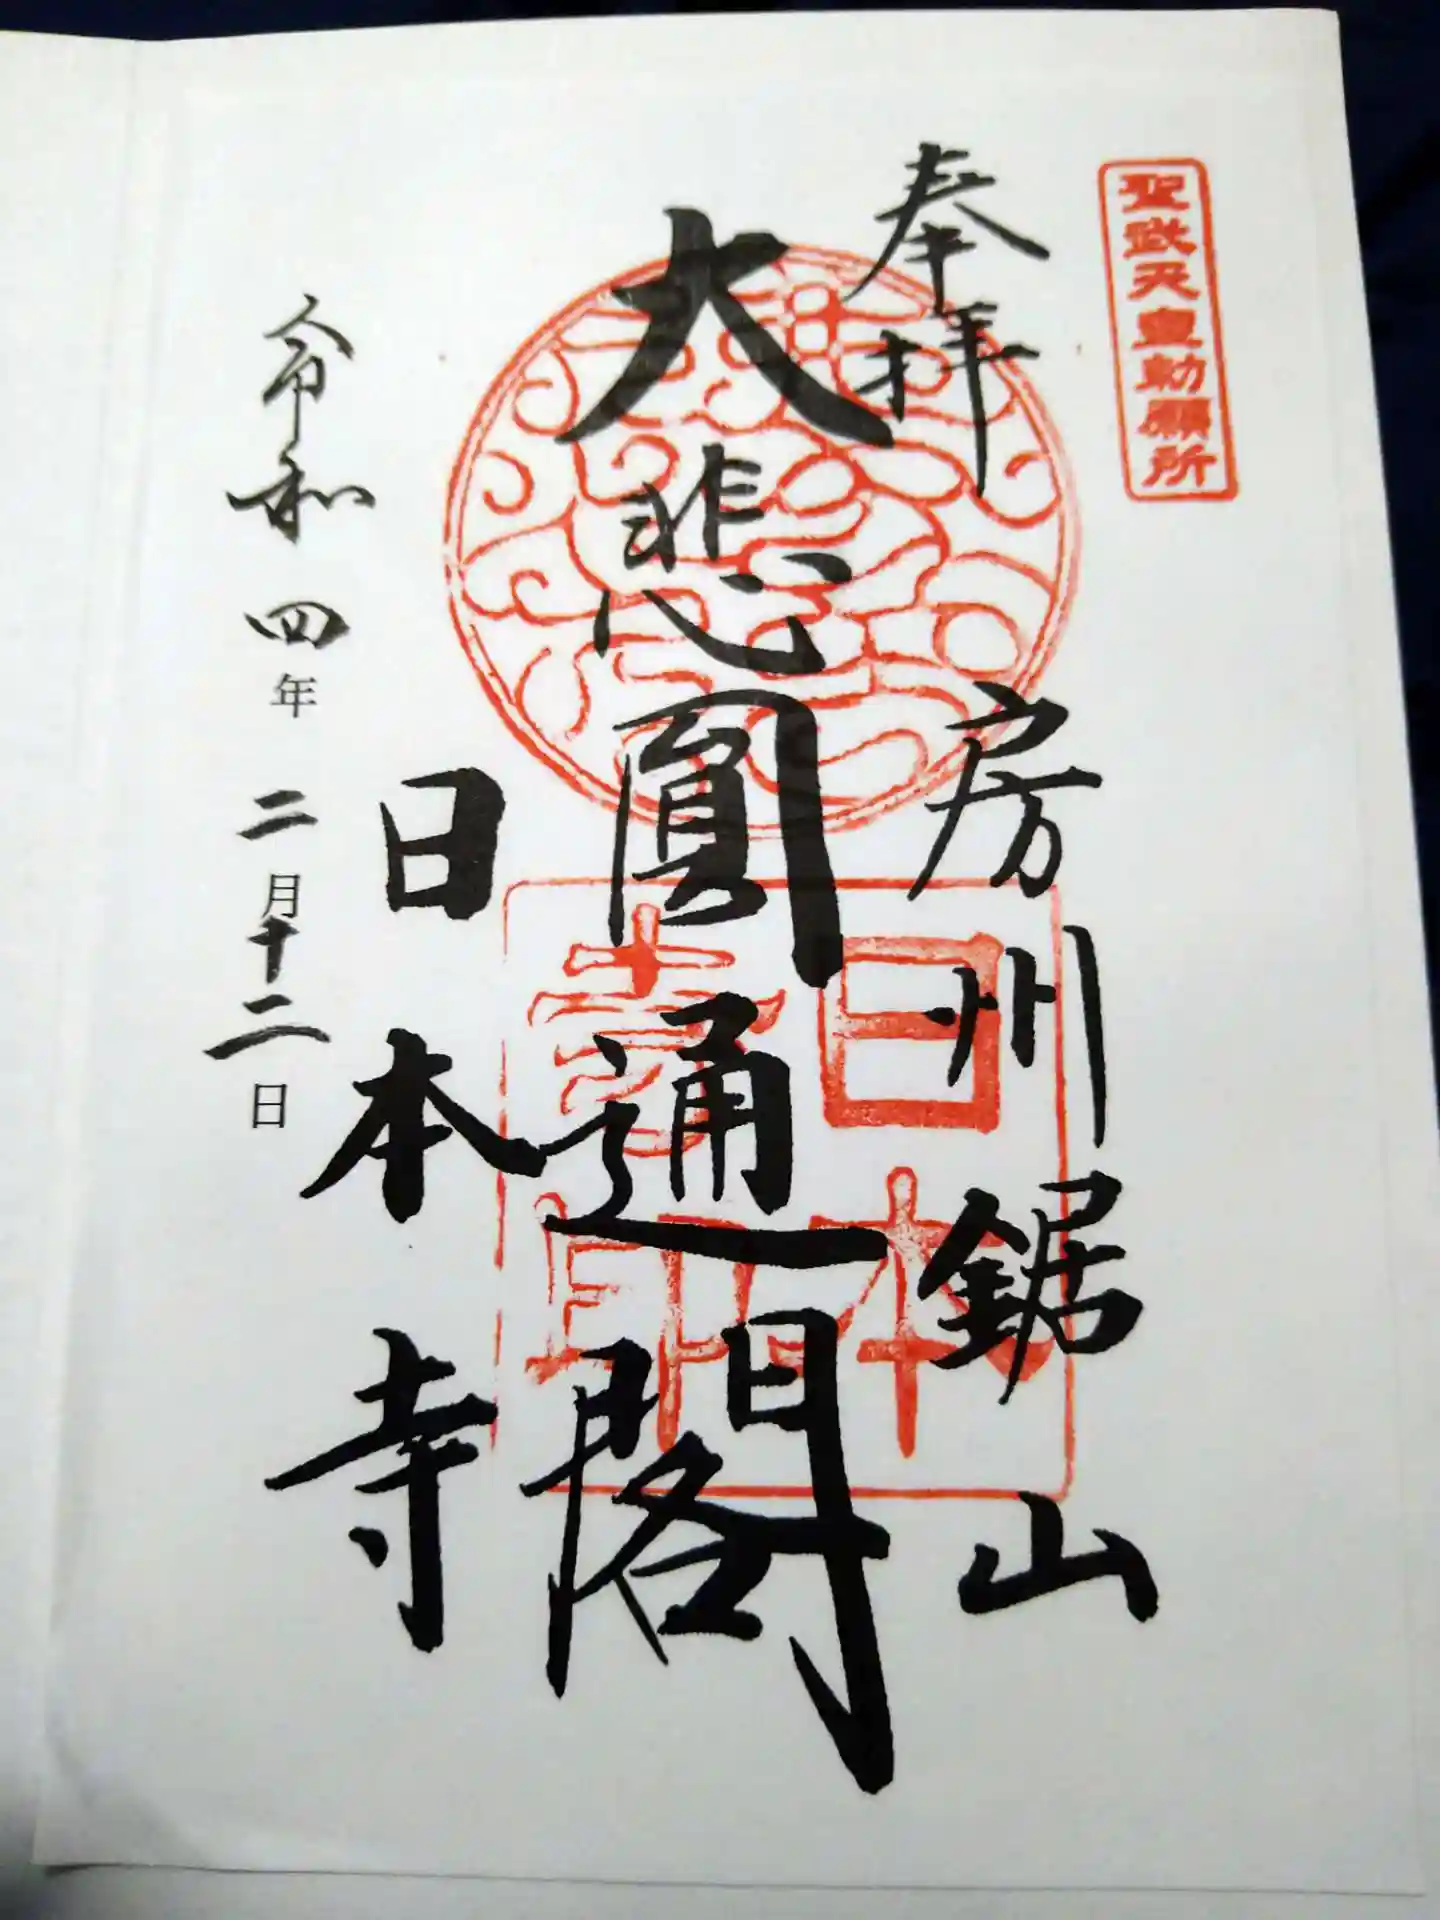 聖武天皇勅願所
奉拝
房州鋸山
大悲圓通閣
日本寺
令和四年二月十二日
日本
寺印